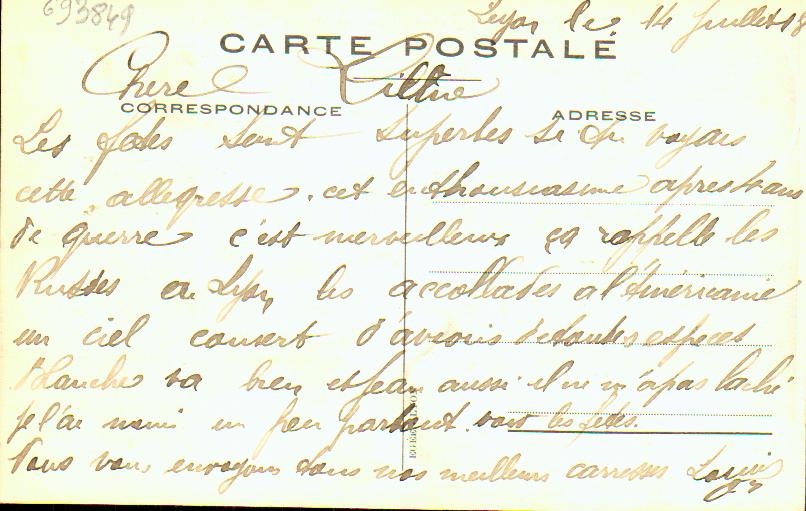 693849
Lyon le 14 Juillet 18
CARTE POSTALE
Chere Liline
CORRESPONDANCE
ADRESSE
Les fetes sont superbes si tu voyais
cette allegresse. cet enthousiasme apres 4 ans
de guerre c'est merveilleux ça rappelle les
Russes en Lyon les accollades a l'Americaine
un ciel couvert d'avions de toutes especes
Blanche va bien et Jean aussi il ne m'a pas laché
je l'ai un peu partout. voir les fetes.
Nous vous envoyons tous nos meilleurs caresses